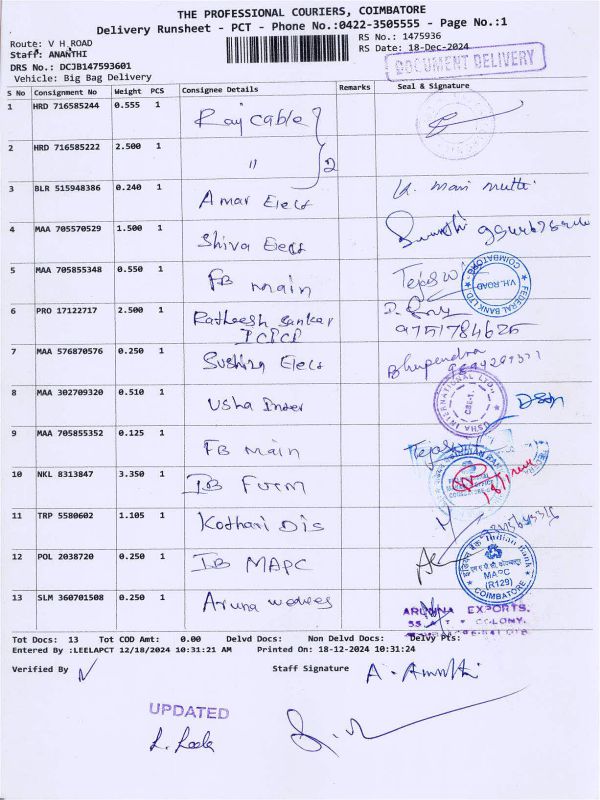 THE PROFESSIONAL COURIERS, COIMBATORE
Delivery Runsheet - PCT - Phone No.:0422-3505555 - Page No.:1
Route: V H ROAD
RS No.: 1475936
Staff: ANANTHI
RS Date: 18-Dec-2024
DRS No.: DCJB147593601
DOCUMENT DELIVERY
Vehicle: Big Bag Delivery
S No Consignment No Weight PCS Consignee Details Remarks Seal & Signature
1 HRD 716585244 0.555 1 Raj cable
2 HRD 716585222 2.500 1 " 2
3 BLR 515948386 0.240 1 Amar Elect
4 MAA 705570529 1.500 1 Shiva Elect
5 MAA 705855348 0.550 1 FB main
FEDERAL BANK LTD. V.H. ROAD COIMBATORE
6 PRO 17122717 2.500 1 Ratheesh sankar
9751784625
7 MAA 576870576 0.250 1 Elect Bhupendra
8 MAA 302709320 0.510 1 Usha Inter
USHA INTERNATIONAL LTD., CBE-1.
9 MAA 705855352 0.125 1 FB main
10 NKL 8313847 3.350 1 IB
11 TRP 5580602 1.105 1 Kothari Dis
12 POL 2038720 0.250 1 IB MAPC
Indian Bank MAPC (R129) COIMBATORE
13 SLM 360701508 0.250 1 Aruna
ARUNA EXPORTS.
COLONY.
Tot Docs: 13 Tot COD Amt: 0.00 Delvd Docs: Non Delvd Docs: Delvy Pts:
Entered By :LEELAPCT 12/18/2024 10:31:21 AM Printed On: 18-12-2024 10:31:24
Verified By Staff Signature
UPDATED